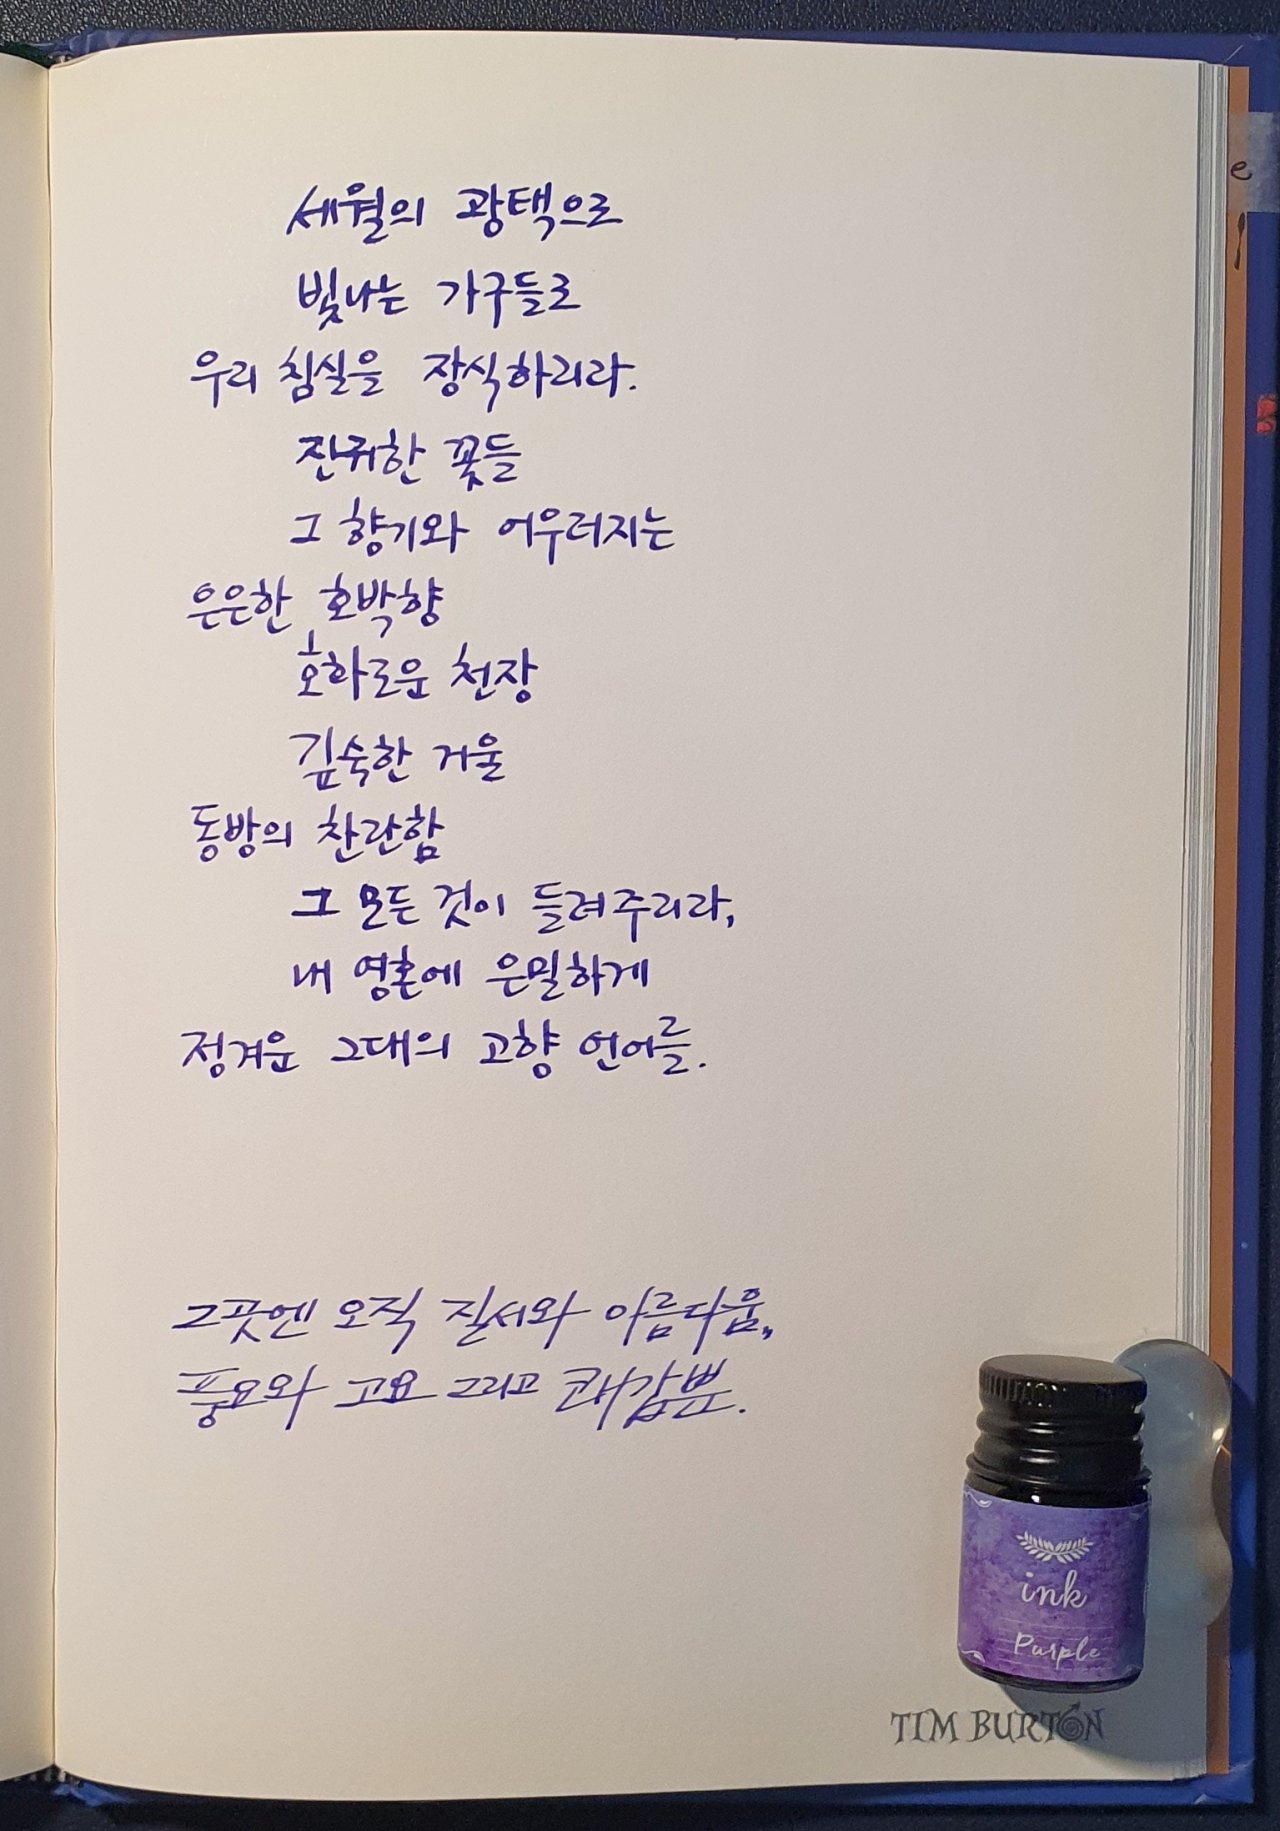 세월의 광택으로
빛나는 가구들로
우리 침실을 장식하리라.
진귀한 꽃들
그 향기와 어우러지는
은은한 호박향
호화로운 천장
깊숙한 거울
동방의 찬란함
그 모든 것이 들려주리라,
내 영혼에 은밀하게
정겨운 그대의 고향 언어를.
그곳엔 오직 질서와 아름다움,
풍요와 고요 그리고 쾌감뿐.
ink
Purple
TIM BURTON
e